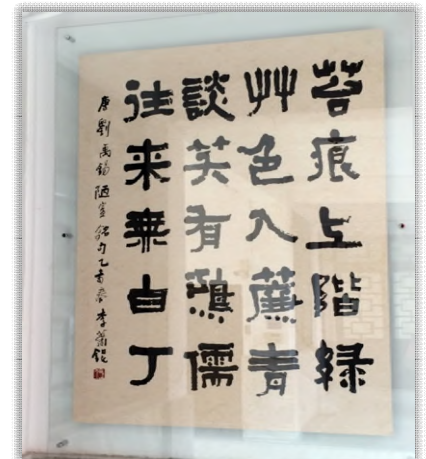 苔痕上階緑
艸色入薕青
談笑有鴻儒
往来無白丁
唐劉禹錫陋室銘句乙酉春李蕭錕